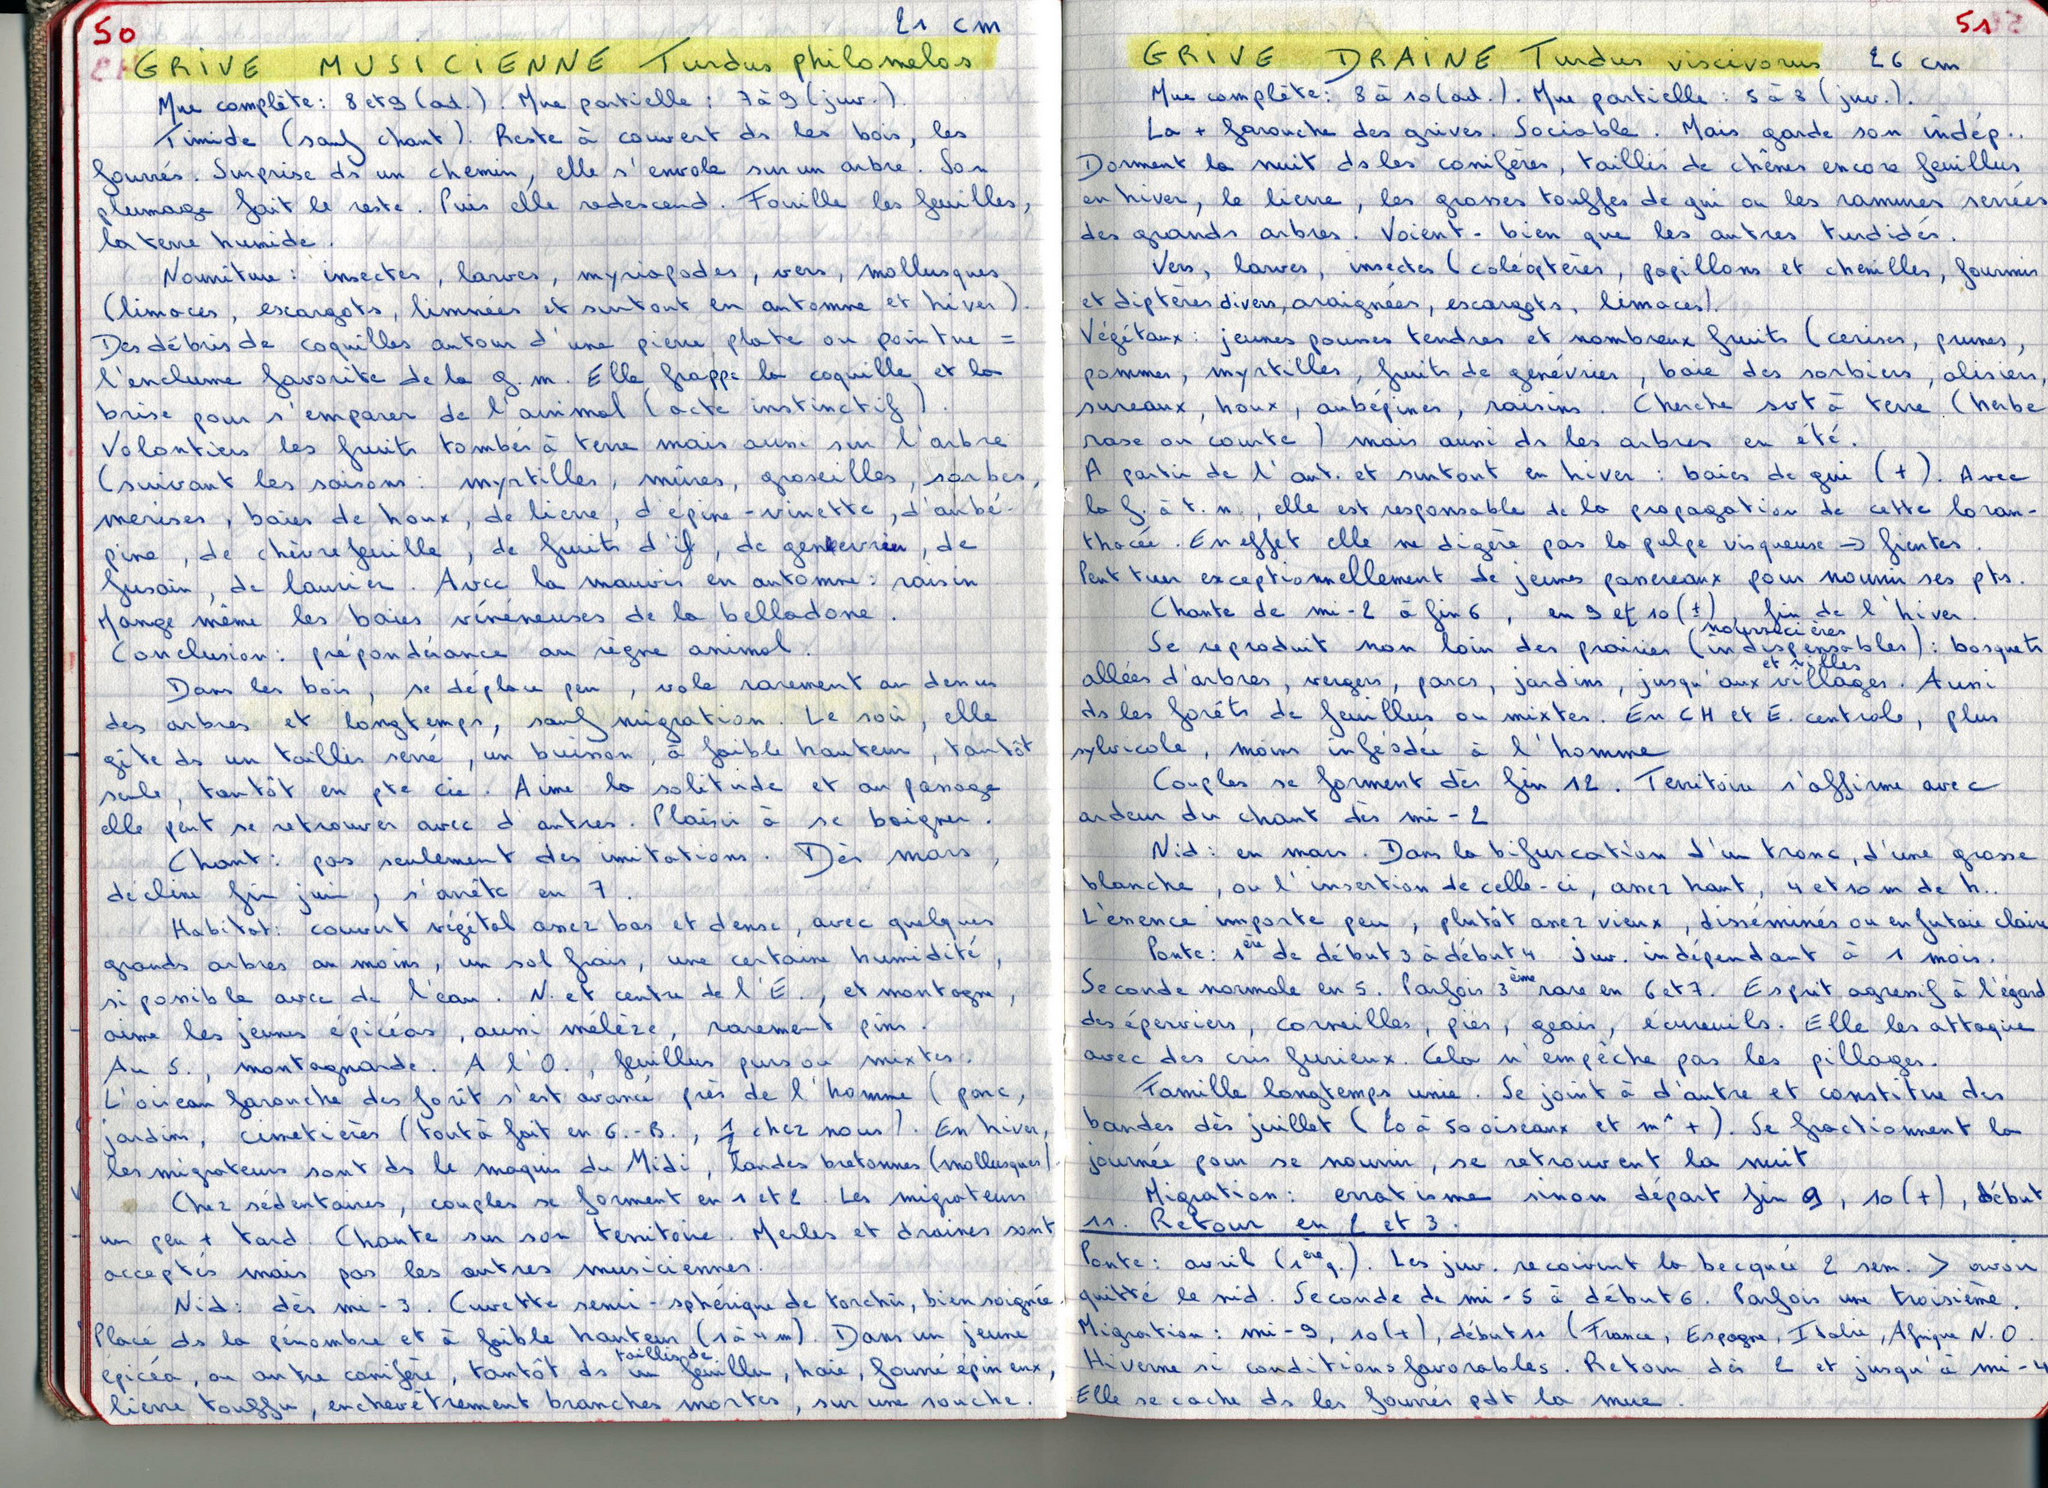 50
21 cm
GRIVE MUSICIENNE Turdus philomelos
Mue complète : 8 et 9 (ad.). Mue partielle : 7 à 9 (juv.).
Timide (sauf chant). Reste à couvert ds les bois, les
fourrés. Surprise ds un chemin, elle s'envole sur un arbre. Son
plumage fait le reste. Puis elle redescend. Fouille les feuilles,
la terre humide.
Nourriture : insectes, larves, myriapodes, vers, mollusques
(limaces, escargots, limnées et surtout en automne et hiver).
Des débris de coquilles autour d'une pierre plate ou pointue =
l'enclume favorite de la g.m. Elle frappe la coquille et la
brise pour s'emparer de l'animal (acte instinctif).
Volontiers les fruits tombés à terre mais aussi sur l'arbre
(suivant les saisons : myrtilles, mûres, groseilles, sorbes,
merises, baies de houx, de lierre, d'épine-vinette, d'aubé-
pine, de chèvrefeuille, de fruits d'if, de genévrier, de
fusain, de laurier. Avec la mauvis en automne : raisin.
Mange même les baies vénéneuses de la belladone.
Conclusion : prépondérance au règne animal.
Dans les bois, se déplace peu, vole rarement au dessus
des arbres et longtemps, sauf migration. Le soir, elle
gîte ds un taillis serré, un buisson, à faible hauteur, tantôt
seule, tantôt en pte cie. Aime la solitude et au passage
elle peut se retrouver avec d'autres. Plaisir à se baigner.
Chant : pas seulement des imitations. Dès mars,
decline fin juin, s'arrête en 7.
Habitat : couvert végétal assez bas et dense, avec quelques
grands arbres au moins, un sol frais, une certaine humidité,
si possible avec de l'eau. N. et centre de l'E., et montagne,
aime les jeunes épicéas, aussi mélèze, rarement pins.
Au S., montagnarde. A l'O., feuillus purs ou mixtes.
L'oiseau farouche des forêt s'est avancé près de l'homme (parc,
jardin, cimetières (tout à fait en G.-B., 1/2 chez nous). En hiver,
les migrateurs sont ds le maquis du Midi, landes bretonnes (mollusques).
Chez sédentaires, couples se forment en 1 et 2. Les migrateurs
un peu + tard. Chante sur son territoire. Merles et draines sont
acceptés mais pas les autres musiciennes.
Nid : dès mi-3. Cuvette semi-sphérique de torchis, bien soignée.
Placé ds la pénombre et à faible hauteur (1 à 4 m). Dans un jeune
épicéa, ou autre conifère, tantôt ds un taillis de feuillu, haie, fourré épineux,
lierre touffu, enchevêtrement branches mortes, sur une souche.
51
GRIVE DRAINE Turdus viscivorus 26 cm
Mue complète : 8 à 10 (ad.). Mue partielle : 5 à 8 (juv.).
La + farouche des grives. Sociable. Mais garde son indép..
Dorment la nuit ds les conifères, taillis de chênes encore feuillus
en hiver, le lierre, les grosses touffes de gui ou les ramures serrées
des grands arbres. Voient - bien que les autres turdidés.
Vers, larves, insectes (coléoptères, papillons et chenilles, fourmis
et diptères divers, araignées, escargots, limaces).
Végétaux : jeunes pousses tendres et nombreux fruits (cerises, prunes,
pommes, myrtilles, fruits de genévrier, baie des sorbiers, alisiers,
sureaux, houx, aubépines, raisins. Cherche svt à terre (herbe
rase ou courte) mais aussi ds les arbres en été.
A partir de l'aut. et surtout en hiver : baies de gui (+). Avec
la f. à t. n., elle est responsable de la propagation de cette loran-
thacée. En effet elle ne digère pas la pulpe visqueuse → fientes.
Peut tuer exceptionnellement de jeunes passereaux pour nourrir ses pts.
Chante de mi-2 à fin 6, en 9 et 10 (±), fin de l'hiver.
Se reproduit non loin des prairies nourricières (indispensables) : bosquets
allées d'arbres, vergers, parcs, jardins, jusqu'aux villages et villes. Aussi
ds les forêts de feuillus ou mixtes. En CH et E. centrale, plus
sylvicole, moins inféodée à l'homme
Couples se forment dès fin 12. Territoire s'affirme avec
ardeur du chant dès mi-2
Nid : en mars. Dans la bifurcation d'un tronc, d'une grosse
blanche, ou l'insertion de celle-ci, assez haut, 4 et 10 m de h..
L'essence importe peu, plutôt assez vieux, disséminés ou en futaie claire
Ponte : 1ère de début 3 à début 4. Juv. indépendant à 1 mois.
Seconde normale en 5. Parfois 3ème rare en 6 et 7. Esprit agressif à l'égard
des éperviers, corneilles, pies, geais, écureuils. Elle les attaque
avec des cris furieux. Cela n'empêche pas les pillages.
Famille longtemps unie. Se joint à d'autre et constitue des
bandes dès juillet (20 à 50 oiseaux et m^ +). Se fractionnent la
journée pour se nourrir, se retrouvent la nuit
Migration : erratisme sinon départ fin 9, 10 (+), début
11. Retour en 2 et 3.
Ponte : avril (1ère q.). Les juv. reçoivent la becquée 2 sem. > avoir
quitté le nid. Seconde de mi-5 à début 6. Parfois une troisième.
Migration : mi-9, 10 (+), début 11 (France, Espagne, Italie, Afrique N.O.
Hiverne si conditions favorables. Retour dès 2 et jusqu'à mi-4
Elle se cache ds les fourrés pdt la mue.